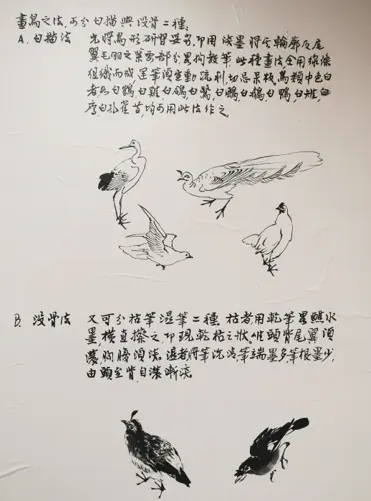 畫鳥之法,可分白描與沒骨二種。
A. 白描法 先將鳥形研習妥當,即用淡墨得其輪廓及尾
翼毛羽之緊密部分累鉤數筆,此種畫法全用線條
組織而成,運筆須生動流利,切忌呆板,鳥類中色白
者如白鶴白雞白鴿白鷺,白鵰,白鵝白鴨,白雉,白
孔雀皆均可用此法作之
B. 没骨法 又可分枯筆濕筆二種,枯者用乾筆略蘸水
墨,橫直擦之,即現乾枯之狀,唯頭背尾翼須
濃,胸膀須淡,濕者將筆沉淺,筆端墨多筆根墨少,
由頭至背,自濃漸淡